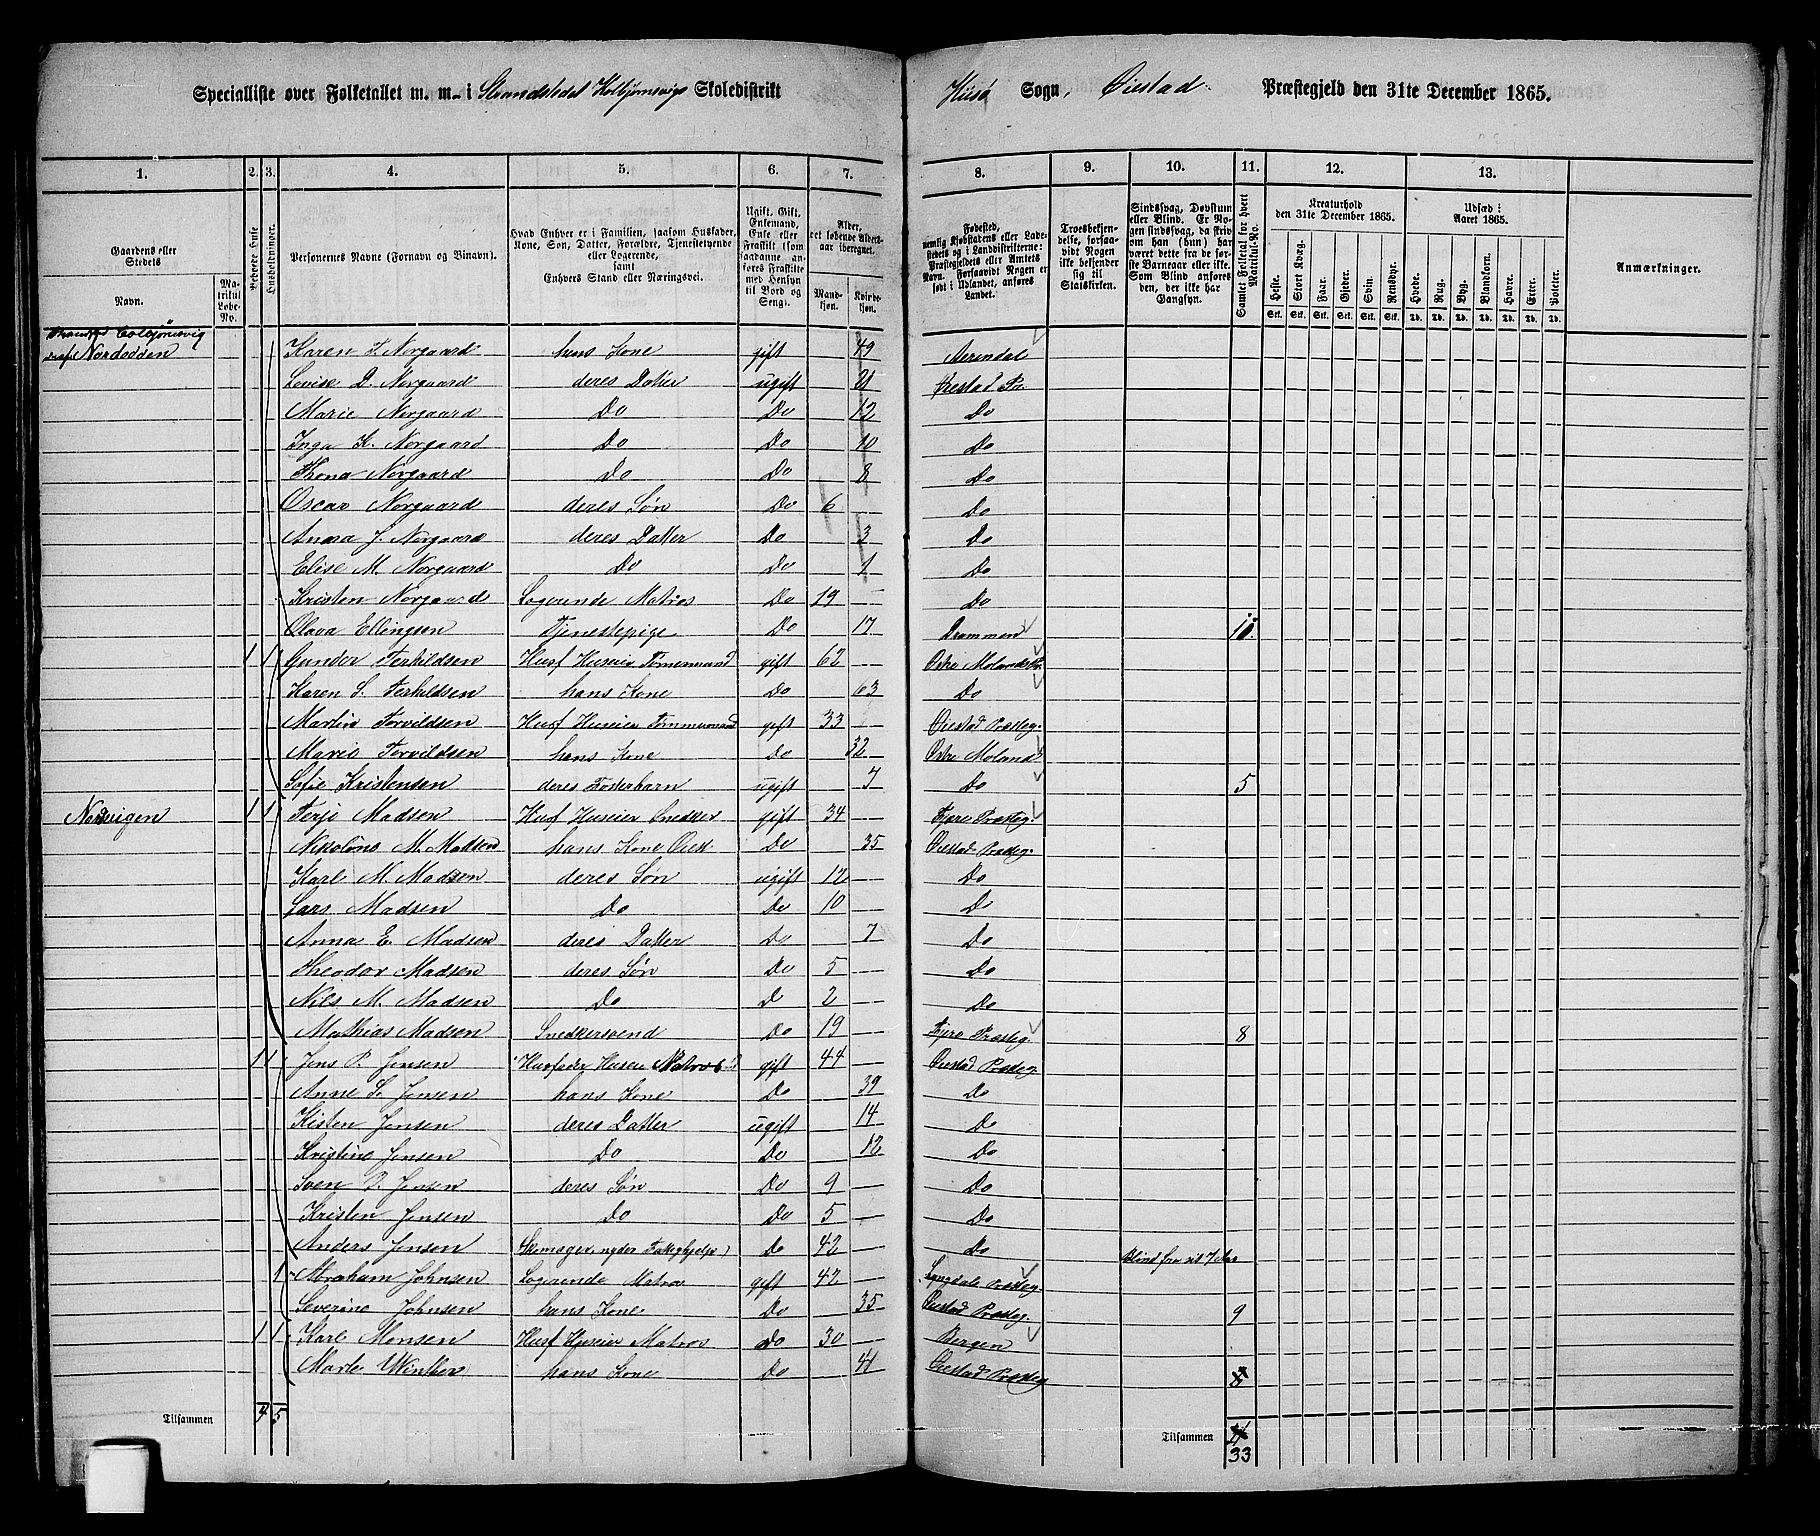 Specialliste over Folketallet m. m. i Strandstedet Kolbjørnsvigs Skoledistrikt Hisø Sogn, Øiestad Præstegjeld den 31te December 1865.
1. 2. 3. 4. 5. 6. 7. 8. 9. 10. 11. 12. 13.
Gaardens eller Stedets
Navn.
Matrikul Løbe-No.
Bebøede Huse
Husholdninger.
Personernes Navne (Fornavn og Binavn).
Hvad Enhver er i Familien, saasom Husfader, Kone, Søn, Datter, Forældre, Tjenestetyende eller Logerende, samt Enhvers Stand eller Næringsvei.
Ugift, Gift, Enkemand, Enke eller Fraskilt (saadanne anføres Fraskilte med Hensyn til Bord og Seng).
Alder, det løbende Aldersaar iberegnet.
Mandkjøn.
Kvindekjøn.
Fødested,
nemlig Kjøbstadens eller Ladestedets og i Landdistrikterne: Præstegjeldets eller Amtets Navn. Forsaavidt Nogen er født i Udlandet, anføres Landet.
Troesbekjendelse, forsaavidt Nogen ikke bekjender sig til Statskirken.
Sindssvag, Døvstum eller Blind. Er Nogen sindssvag, da skriv om han (hun) har været dette fra de første Barneaar eller ikke. Som Blind anføres den, der ikke har Gangsyn.
Samlet Folketal for hvert Matrikul-No.
Kreaturhold
den 31te December 1865.
Heste. Stort Kvæg. Faar. Gjeder. Svin. Rensdyr.
Stk. Stk. Stk. Stk. Stk. Stk.
Udsæd i
Aaret 1865.
Hvede. Rug. Byg. Blandkorn. Havre. Erter. Poteter.
Td. Td. Td. Td. Td. Td. Td.
Anmærkninger.
Colbjønsvig
Nordodden Karen T. Norgaard hans Kone gift 49 Aerendal
Lovise D. Norgaard deres Datter ugift 21 Øiestad Pr.
Marie Norgaard Do Do 12 Do
Inga K. Norgaard Do Do 10 Do
Thona Norgaard Do Do 8 Do
Oscar Norgaard deres Søn Do 6 Do
Anna J. Norgaard deres Datter Do 3 Do
Elise M. Norgaard Do Do 1 Do
Kristen Norgaard Logerende Matros Do 19 Do
Olava Ellingsen Tjenestepige Do 17 Drammen 11
1 1 Gunder Terkildsen Husf Huseier Tømermand gift 62 Østre Molands Pr.
Karen S. Terkildsen hans Kone Do 63 Do
Martin Torvildsen Husf Huseier Tømmermand gift 33 Øiestad Præsteg.
Marie Torvildsen hans Kone Do 32 Østre Moland
Sofie Kristensen deres Fosterbarn ugift 7 Do 5
Norvigen 1 1 Terje Madsen Husf Huseier Snedker gift 34 Fjere Præsteg.
Nikoline M. Madsen hans Kone Do 35 Øiestad Præsteg.
Karl M. Madsen deres Søn ugift 12 Do
Lars Madsen Do Do 10 Do
Anna E. Madsen deres Datter Do 7 Do
Theodor Madsen deres Søn Do 5 Do
Nils M. Madsen Do D 2 Do
Mathias Madsen Snedkersvend Do 19 Fjere Præsteg. 8
1 1 Jens P. Jensen Husfader Huseier Matros gift 44 Øiestad Præsteg.
Anne S. Jensen hans Kone Do 39 Do
Kisten Jensen deres Datter ugift 14 Do
Kristine Jensen Do Do 12 Do
Sven P. Jensen deres Søn Do 9 Do
Kristen Jensen Do Do 5 Do
Anders Jensen Skomager, nyder Fattighjelp Do 42 Do Blind fra sit 7 Aar
1 Abraham Johnsen Logerende Matros gift 42 Lyngdals Præsteg.
Severine Johnsen hans Kone Do 35 Øiestad Præsteg. 9
1 1 Karl Monsen Husf Huseier Matros Do 30 Bergen
Marte Winther hans Kone Do 41 Øiestad Præsteg
Tilsammen 4 5 Tilsammen 33